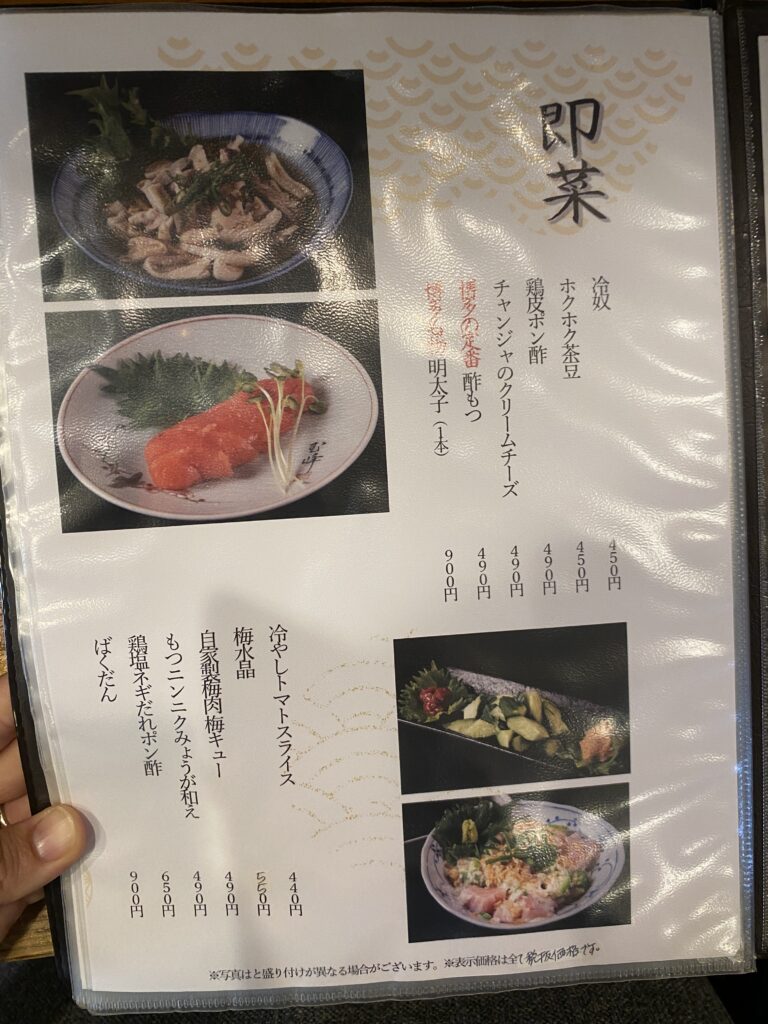 即菜
冷奴
ホクホク茶豆
鶏皮ポン酢
チャンジャのクリームチーズ
博多の定番 酢もつ
博多 明太子（1本）
450円
450円
490円
490円
490円
900円
冷やしトマトスライス
梅水晶
自家製梅肉梅キュー
もつニンニクみょうが和え
鶏塩ネギだれポン酢
ばくだん
440円
550円
490円
490円
650円
900円
※写真はと盛り付けが異なる場合がございます。※表示価格は全て税抜価格です。